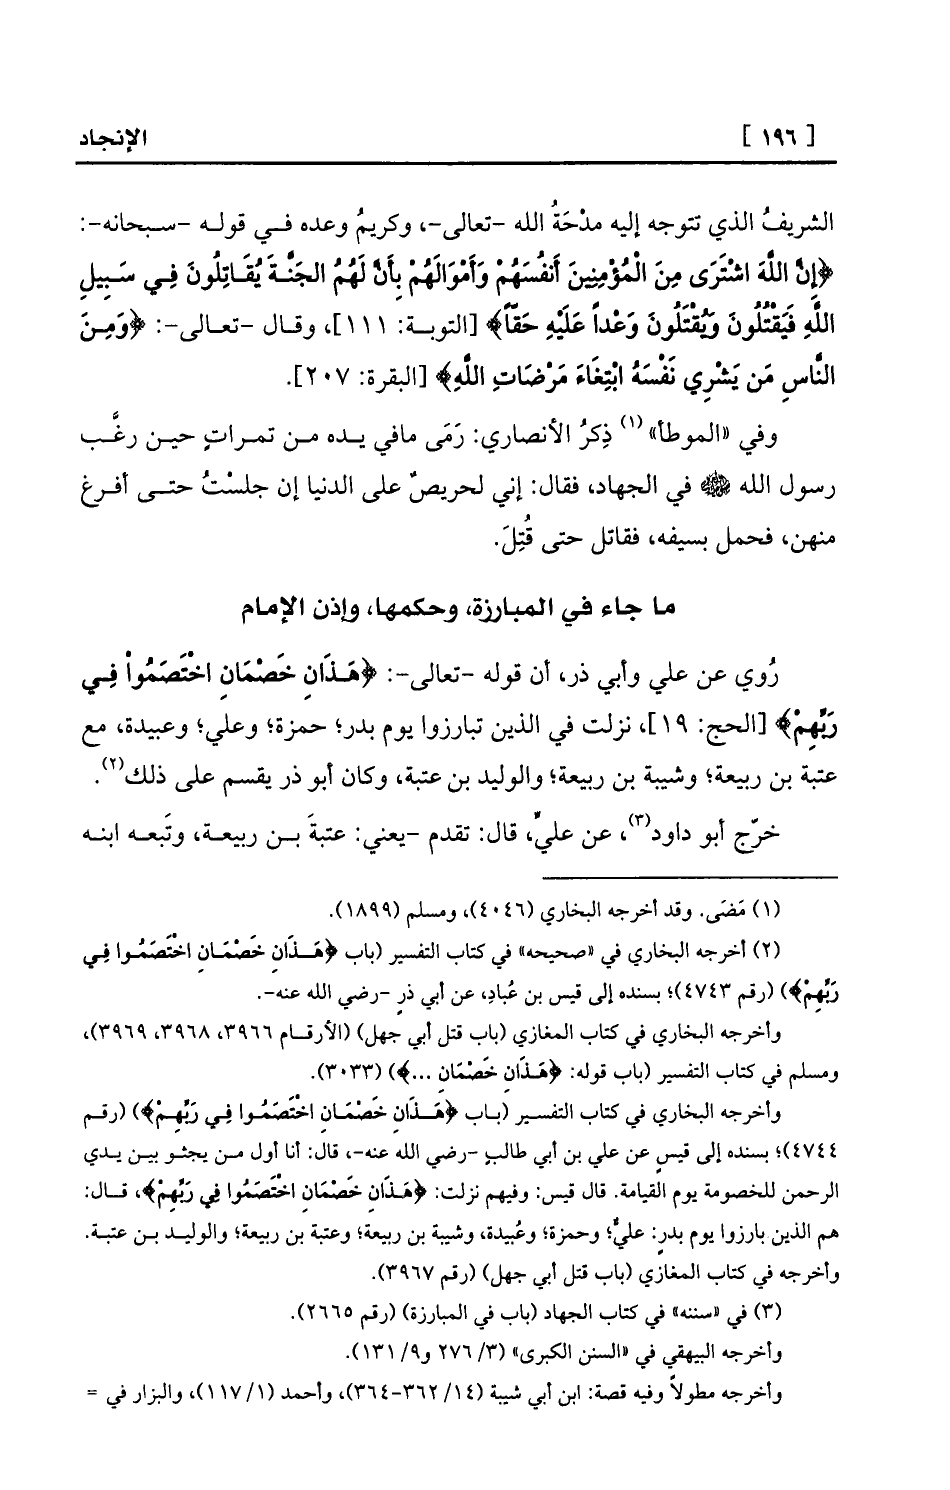 [ ١٩٦ ] الإنجاد
الشريفُ الذي تتوجه إليه مدْحَةُ الله -تعالى-، وكريمُ وعده فـي قولـه -سـبحانه-:
﴿إِنَّ اللَّهَ اشْتَرَى مِنَ الْمُؤْمِنِينَ أَنفُسَهُمْ وَأَمْوَالَهُمْ بِأَنَّ لَهُمُ الجَنَّـةَ يُقَـاتِلُونَ فِـي سَـبِيلِ
اللَّهِ فَيَقْتُلُونَ وَيُقْتَلُونَ وَعْداً عَلَيْهِ حَقّاً﴾ [التوبـة: ١١١]، وقـال -تعـالى-: ﴿وَمِـنَ
النَّاسِ مَن يَشْرِي نَفْسَهُ ابْتِغَاءَ مَرْضَاتِ اللَّهِ﴾ [البقرة: ٢٠٧].
وفي «الموطأ»(١) ذِكرُ الأنصاري: رَمَى مافي يـده مـن تمـراتٍ حيـن رغَّـب
رسول الله ﷺ في الجهاد، فقال: إني لحريصٌ على الدنيا إن جلسْتُ حتـى أفـرغ
منهن، فحمل بسيفه، فقاتل حتى قُتِلَ.
ما جاء في المبارزة، وحكمها، وإذن الإمام
رُوي عن علي وأبي ذر، أن قوله -تعالى-: ﴿هَـذَانِ خَصْمَانِ اخْتَصَمُواْ فِـي
رَبِّهِمْ﴾ [الحج: ١٩]، نزلت في الذين تبارزوا يوم بدر؛ حمزة؛ وعلي؛ وعبيدة، مع
عتبة بن ربيعة؛ وشيبة بن ربيعة؛ والوليد بن عتبة، وكان أبو ذر يقسم على ذلك(٢).
خرّج أبو داود(٣)، عن عليٍّ، قال: تقدم -يعني: عتبةَ بـن ربيعـة، وتَبعـه ابنـه
(١) مَضَى. وقد أخرجه البخاري (٤٠٤٦)، ومسلم (١٨٩٩).
(٢) أخرجه البخاري في «صحيحه» في كتاب التفسير (باب ﴿هَـذَانِ خَصْمَانِ اخْتَصَمُـوا فِـي
رَبِّهِمْ﴾) (رقم ٤٧٤٣)؛ بسنده إلى قيس بن عُبادٍ، عن أبي ذرٍ -رضي الله عنه-.
وأخرجه البخاري في كتاب المغازي (باب قتل أبي جهل) (الأرقـام ٣٩٦٦، ٣٩٦٨، ٣٩٦٩)،
ومسلم في كتاب التفسير (باب قوله: ﴿هَـذَانِ خَصْمَانِ ...﴾) (٣٠٣٣).
وأخرجه البخاري في كتاب التفسـير (بـاب ﴿هَـذَانِ خَصْمَـانِ اخْتَصَمُـوا فِـي رَبِّهِـمْ﴾) (رقـم
٤٧٤٤)؛ بسنده إلى قيسٍ عن علي بن أبي طالبٍ -رضي الله عنه-، قال: أنا أول مـن يجثـو بيـن يـدي
الرحمن للخصومة يوم القيامة. قال قيس: وفيهم نزلت: ﴿هَـذَانِ خَصْمَانِ اخْتَصَمُوا فِي رَبِّهِمْ﴾، قـال:
هم الذين بارزوا يوم بدرٍ: عليٌّ؛ وحمزة؛ وعُبيدة، وشيبة بن ربيعة؛ وعتبة بن ربيعة؛ والوليـد بـن عتبـة.
وأخرجه في كتاب المغازي (باب قتل أبي جهل) (رقم ٣٩٦٧).
(٣) في «سننه» في كتاب الجهاد (باب في المبارزة) (رقم ٢٦٦٥).
وأخرجه البيهقي في «السنن الكبرى» (٣/ ٢٧٦ و٩/ ١٣١).
وأخرجه مطولاً وفيه قصة: ابن أبي شيبة (١٤/ ٣٦٢-٣٦٤)، وأحمد (١/ ١١٧)، والبزار في =